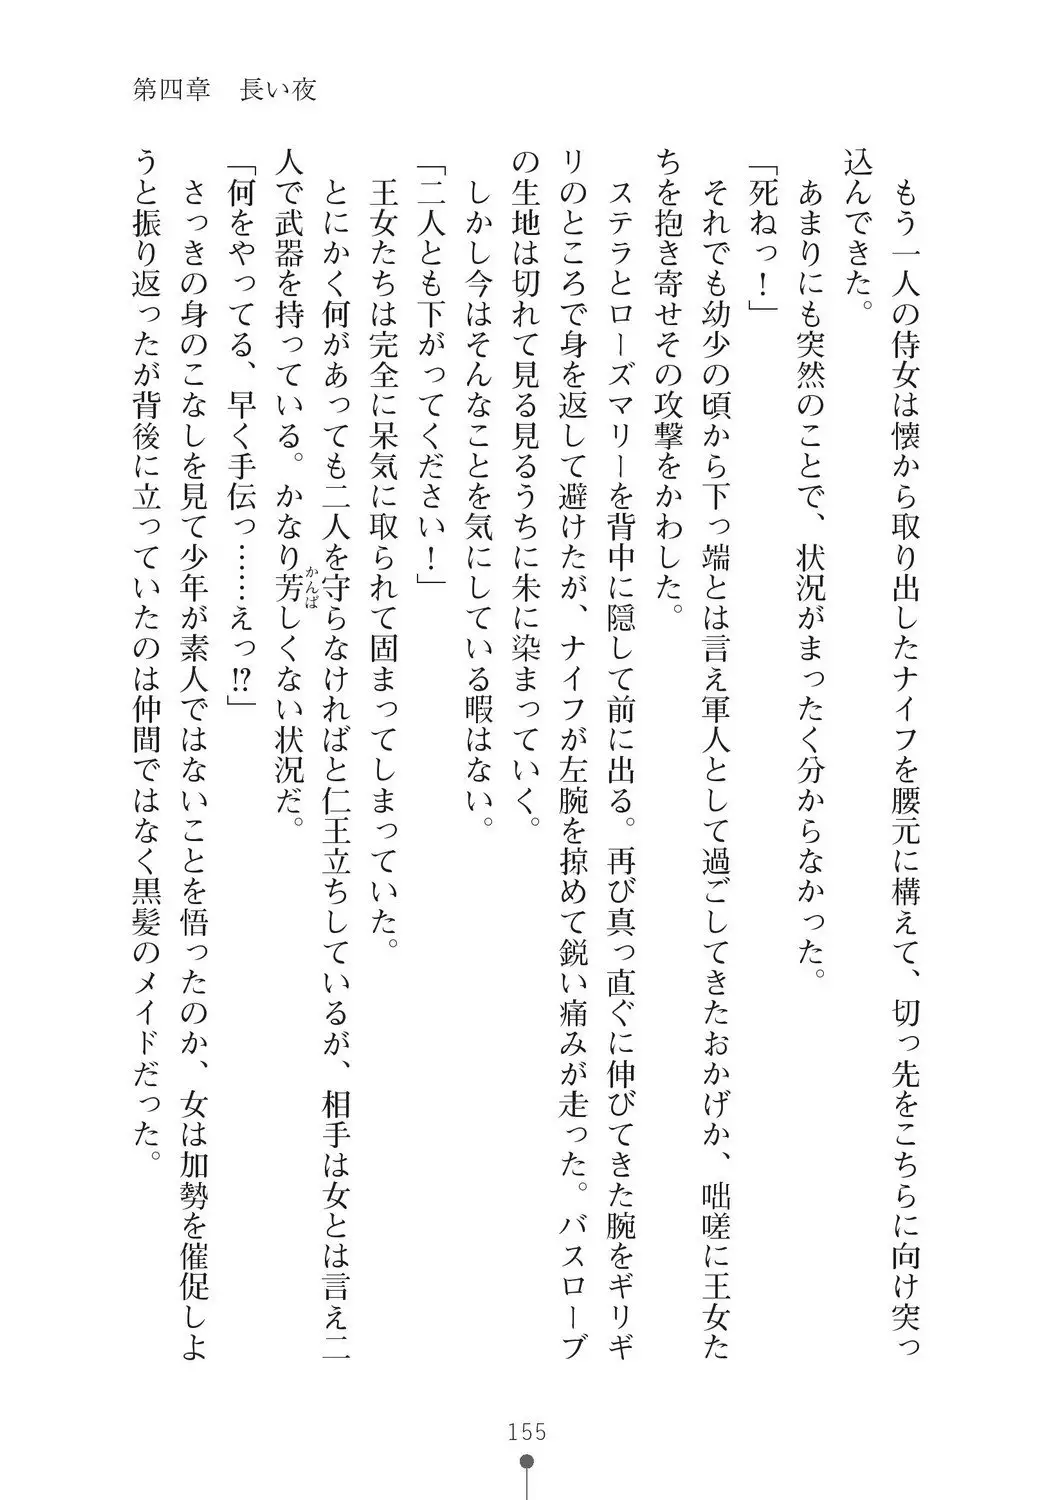 第四章　長い夜
　もう一人の侍女は懐から取り出したナイフを腰元に構えて、切っ先をこちらに向け突っ
込んできた。
　あまりにも突然のことで、状況がまったく分からなかった。
「死ねっ！」
　それでも幼少の頃から下っ端とは言え軍人として過ごしてきたおかげか、咄嗟に王女た
ちを抱き寄せその攻撃をかわした。
　ステラとローズマリーを背中に隠して前に出る。再び真っ直ぐに伸びてきた腕をギリギ
リのところで身を返して避けたが、ナイフが左腕を掠めて鋭い痛みが走った。バスローブ
の生地は切れて見る見るうちに朱に染まっていく。
　しかし今はそんなことを気にしている暇はない。
「二人とも下がってください！」
　王女たちは完全に呆気に取られて固まってしまっていた。
　とにかく何があっても二人を守らなければと仁王立ちしているが、相手は女とは言え二
人で武器を持っている。かなり芳しくない状況だ。
かんば
「何をやってる、早く手伝っ……えっ!?」
　さっきの身のこなしを見て少年が素人ではないことを悟ったのか、女は加勢を催促しよ
うと振り返ったが背後に立っていたのは仲間ではなく黒髪のメイドだった。
155